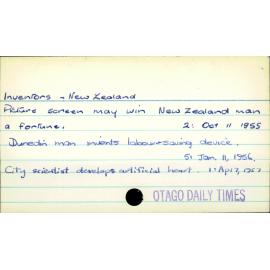 Inventors - New Zealand
Picture screen may win New Zealand man
a fortune. 2: Oct 11 1955
Dunedin man invents labour-saving device.
5: Jan. 11, 1956.
City scientist develops artificial heart. 1: Apl 7, 
OTAGO DAILY TIMES